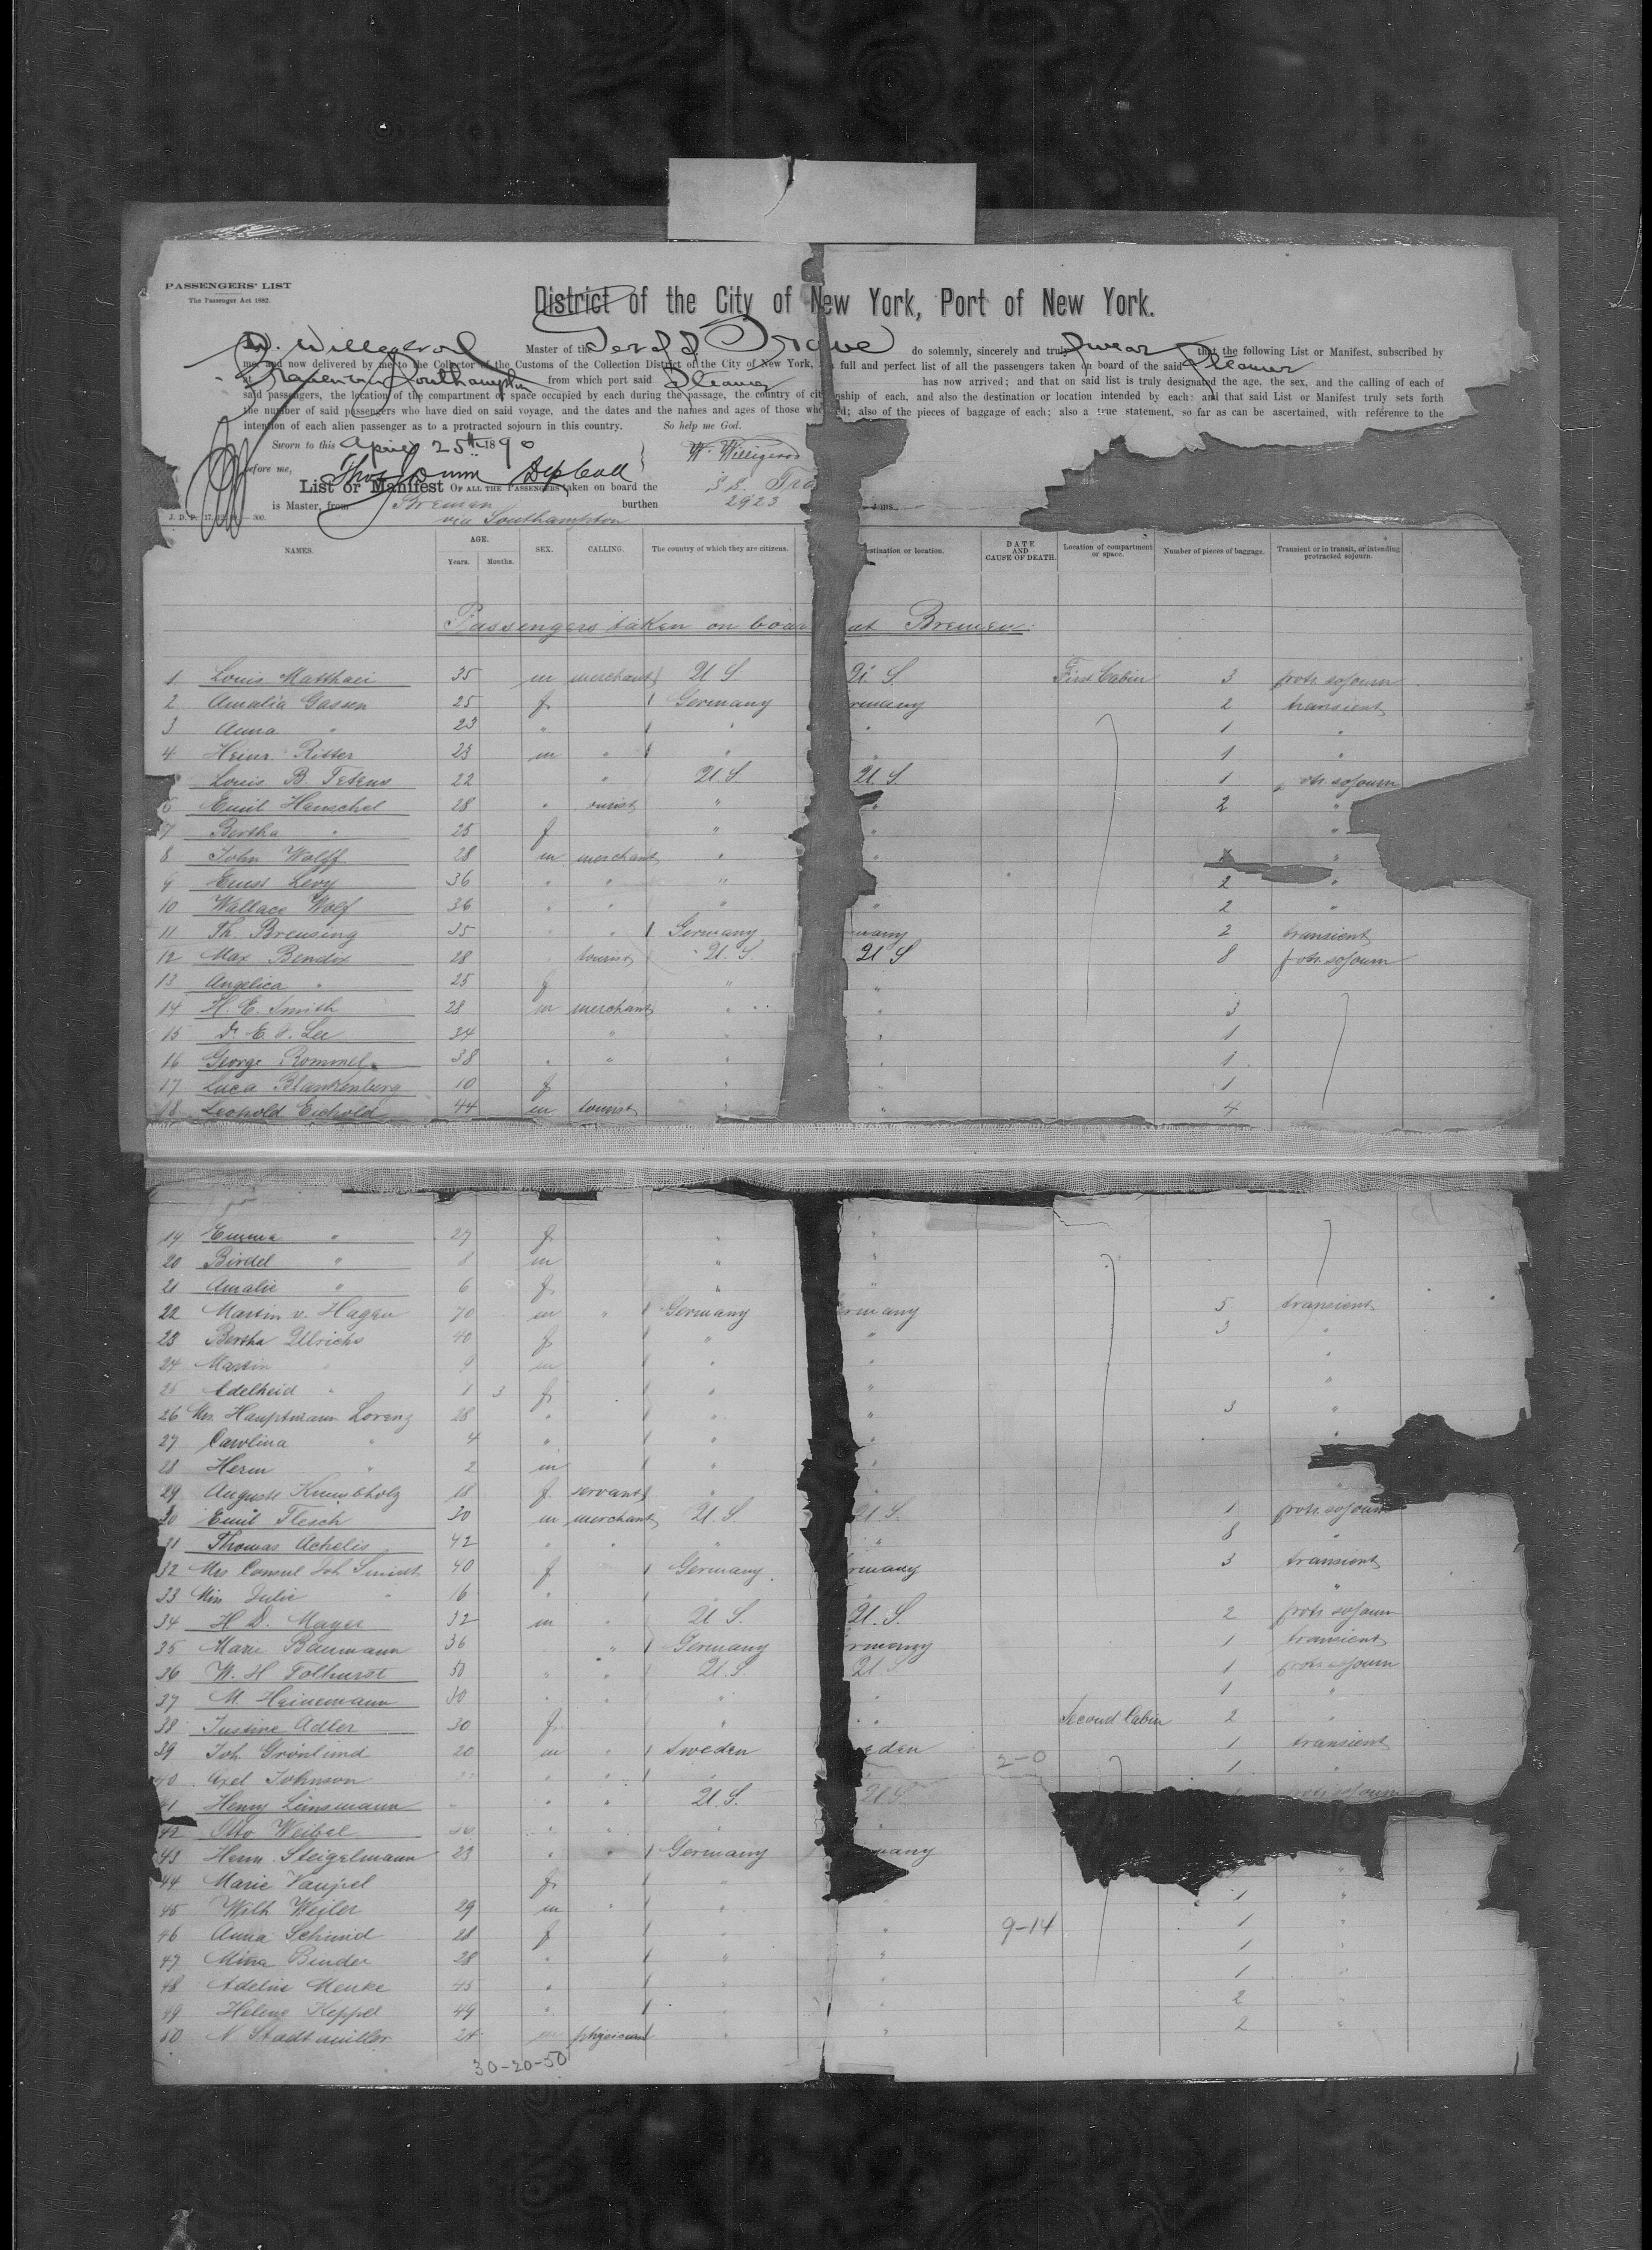 PASSENGERS' LIST
The Passenger Act 1882.
District of the City of New York, Port of New York.
W. Willigerod Master of the Nordd. S. Trave do solemnly, sincerely and truly swear that the following List or Manifest, subscribed by
me, and now delivered by me to the Collector of the Customs of the Collection District of the City of New York, full and perfect list of all the passengers taken on board of the said Steamer
at Bremen & Southampton from which port said Steamer has now arrived; and that on said list is truly designated the age, the sex, and the calling of each of
said passengers, the location of the compartment or space occupied by each during the passage, the country of citizenship of each, and also the destination or location intended by each: and that said List or Manifest truly sets forth
the number of said passengers who have died on said voyage, and the dates and the names and ages of those who died; also of the pieces of baggage of each; also a true statement, so far as can be ascertained, with reference to the
intention of each alien passenger as to a protracted sojourn in this country. So help me God.
Sworn to this April 25th 1890
before me, W. Willigerod
List or Manifest OF ALL THE PASSENGERS taken on board the S.S. Tra
is Master, from Bremen burthen 2923 tons
via Southampton
NAMES. AGE. Years. Months. SEX. CALLING. The country of which they are citizens. destination or location. DATE AND CAUSE OF DEATH. Location of compartment or space. Number of pieces of baggage. Transient or in transit, or intending protracted sojourn.
Passengers taken on board at Bremen:
1 Louis Matthaei 35 m merchant U S U. S. First Cabin 3 protr. sojourn
2 Amalia Gassen 25 f Germany rmany 2 transient
3 Anna " 23 " " " 1 "
4 Heinr. Ritter 23 m " " " 1 "
Louis B. Tetens 22 " U S. U. S. 1 otr. sojourn
6 Emil Henschel 28 " ourist " " 2 "
7 Bertha " 25 f " " "
8 John Wolff 28 m merchant " " "
9 Ernst Levy 36 " " " 2 "
10 Wallace Wolf 36 " " " " 2 "
11 Th. Breusing 35 " " Germany many 2 transient
12 Max Bendix 28 " tourist U. S. U S 8 protr. sojourn
13 Angelica " 25 f " "
14 H. E. Smith 28 m merchant " " 3
15 34 " " " 1
16 George Rommel 38 " " " 1
17 Luca Blankenberg 10 f " " 1
18 Leopold Eichold 44 m tourist " " 4
19 Emma " 27 f " "
20 Birdel " 8 m " "
21 Amalie " 6 f " "
22 Martin v. Hagen 70 m " Germany ermany 5 transient
23 Bertha Ullrichs 40 f " " 3 "
24 Martin " 9 m " " "
25 Adelheid " 1 3 f " " "
26 Mrs. Hauptmann Lorenz 28 " " " 3 "
27 Carolina " 4 " " " "
28 Herm " 2 m " "
29 Auguste Krumbholz 18 f servant " " "
30 Emil Flesch 30 m merchant U. S. U. S. 1 protr. sojourn
31 Thomas Achelis 42 " " " " 8 "
32 Mrs Consul Joh Smidt 40 f Germany rmany 3 transient
33 Miss Julie " 16 " " "
34 H D. Mayer 32 m " U S. U. S. 2 protr sojourn
35 Marie Baumann 36 " Germany rmany 1 transient
36 W. H Tolhurst 50 " " U. S. U S 1 protr sojourn
37 M. Heinemann 30 " " " " 1 "
38 Justine Adler 30 f " " Second Cabin 2 "
39 Joh Grönlund 20 m " Sweden eden 2-0 1 transient
40 Axel Johnson " " " 1 "
41 Henry Linsmann " " U. S. U S protr. sojourn
42 Otto Weibel " " "
43 Herm. Steigelmann 23 " " Germany many
44 Marie Vaupel f " "
45 Wilh Weiler 29 m " " 1 "
46 Anna Schmid 28 f " " 9-14 1 "
47 Mina Binder 28 " " " 1 "
48 Adeline Menke 45 " " " 1 "
49 Helene Keppel 49 " " " 2 "
50 N. Stadtmüller 24 m physician " " 2 "
30-20-50